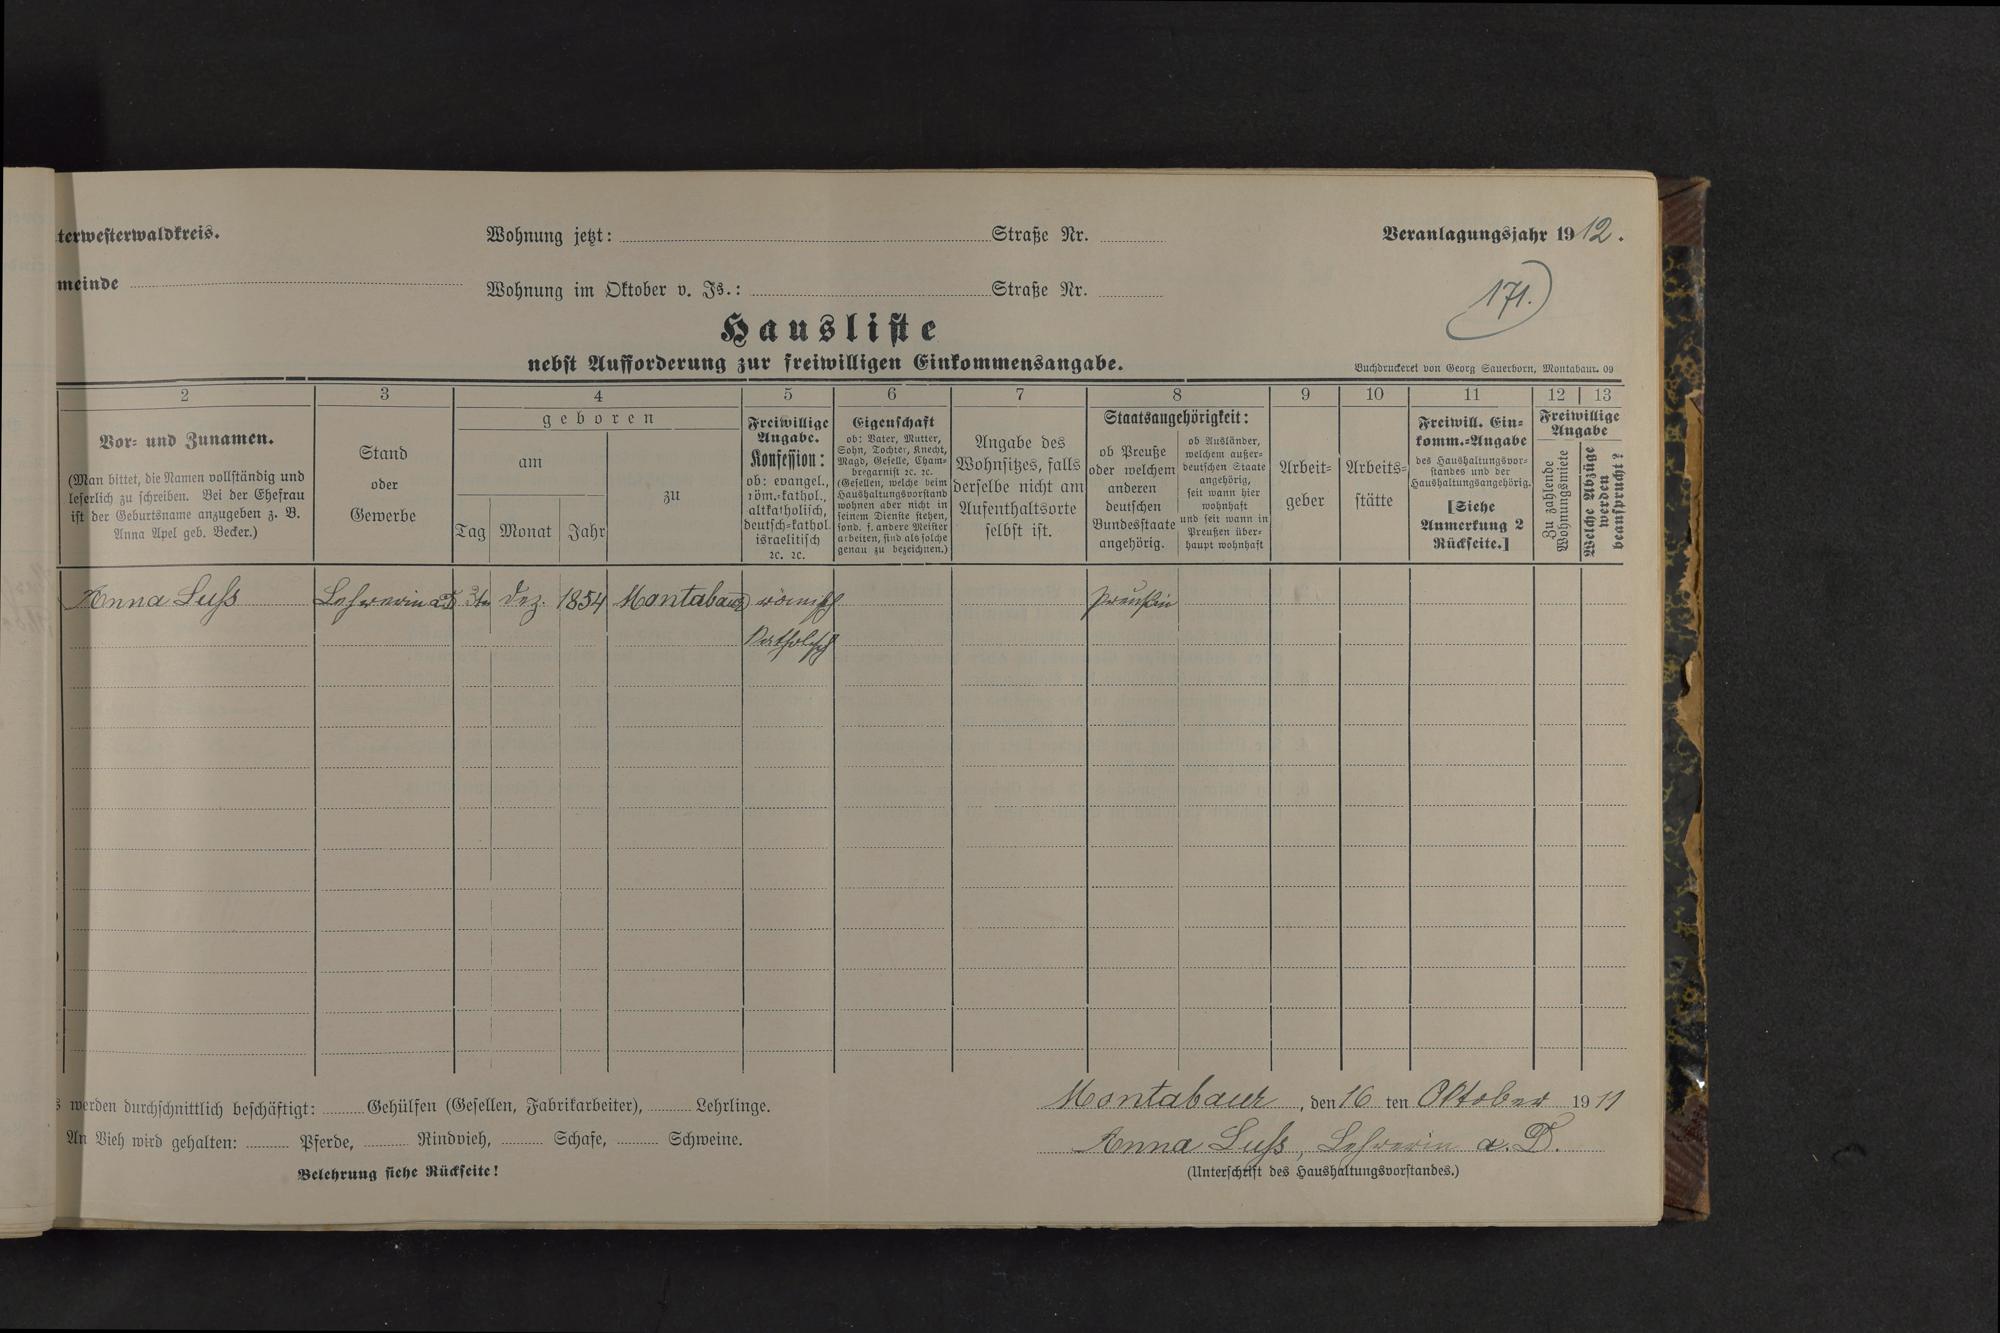 terwesterwaldkreis.
Wohnung jetzt: Straße Nr.
Veranlagungsjahr 1912.
meinde
Wohnung im Oktober v. Js.: Straße Nr.
171.
Hausliste
nebst Aufforderung zur freiwilligen Einkommensangabe.
Buchdruckerei von Georg Sauerborn, Montabaur. 09
2
3
4
5
6
7
8
9
10
11
12
13
Vor- und Zunamen.
(Man bittet, die Namen vollständig und
leserlich zu schreiben. Bei der Ehefrau
ist der Geburtsname anzugeben z. B.
Anna Apel geb. Becker.)
Stand
oder
Gewerbe
geboren
am
Tag
Monat
Jahr
zu
Freiwillige
Angabe.
Konfession:
ob: evangel.,
röm.-kathol.,
altkatholisch,
deutsch-kathol.
israelitisch
ꝛc. ꝛc.
Eigenschaft
ob: Vater, Mutter,
Sohn, Tochter, Knecht,
Magd, Geselle, Cham-
bregarnist ꝛc. ꝛc.
(Gesellen, welche beim
Haushaltungsvorstand
wohnen aber nicht in
seinem Dienste stehen,
sond. f. andere Meister
arbeiten, sind als solche
genau zu bezeichnen.)
Angabe des
Wohnsitzes, falls
derselbe nicht am
Aufenthaltsorte
selbst ist.
Staatsangehörigkeit:
ob Preuße
oder welchem
anderen
deutschen
Bundesstaate
angehörig.
ob Ausländer,
welchem außer-
deutschen Staate
angehörig,
seit wann hier
wohnhaft
und seit wann in
Preußen über-
haupt wohnhaft
Arbeit-
geber
Arbeits-
stätte
Freiwill. Ein-
komm.-Angabe
des Haushaltungsvor-
standes und der
Haushaltungsangehörig.
[Siehe
Anmerkung 2
Rückseite.]
Freiwillige
Angabe
Zu zahlende
Wohnungsmiete
Welche Abzüge
werden
beansprucht?
Anna Luss Lehrerin a.D 3ten Dez. 1854 Montabaur römisch Preußin
Katholisch
s werden durchschnittlich beschäftigt: Gehülfen (Gesellen, Fabrikarbeiter), Lehrlinge.
An Vieh wird gehalten: Pferde, Rindvieh, Schafe, Schweine.
Belehrung siehe Rückseite!
Montabaur, den 16 ten Oktober 1911
Anna Luss, Lehrerin a. D.
(Unterschrift des Haushaltungsvorstandes.)